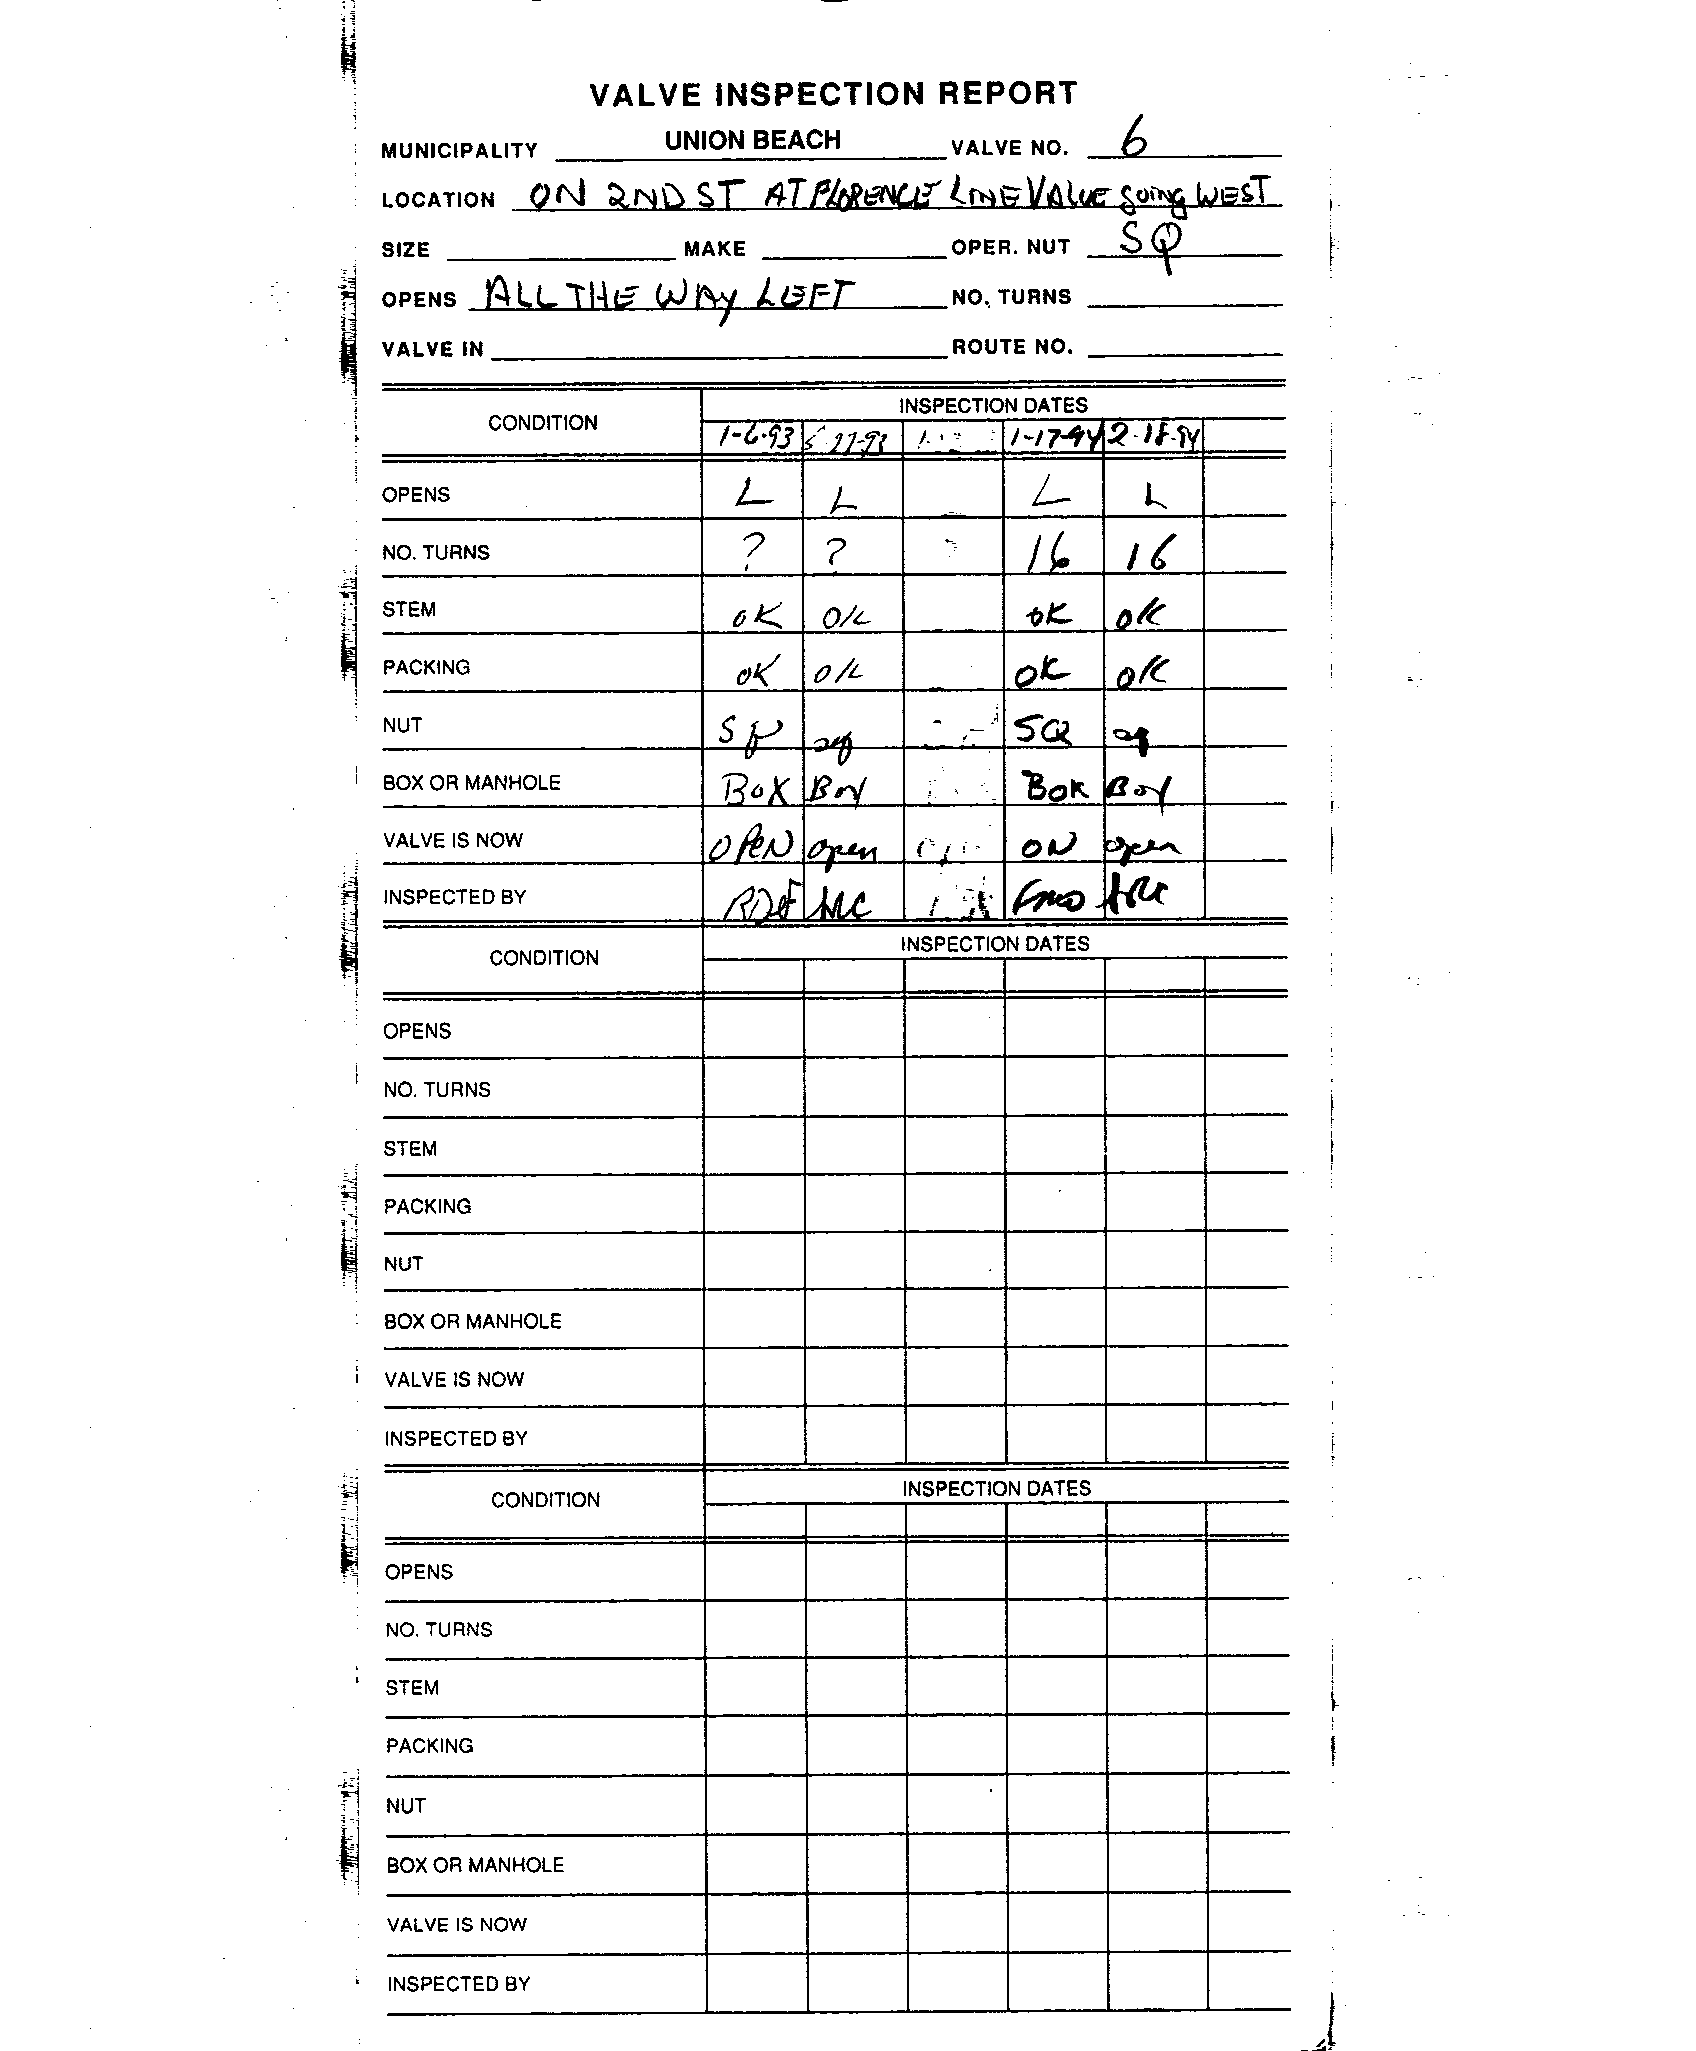 VALVE INSPECTION REPORT
MUNICIPALITY UNION BEACH VALVE NO. 6
LOCATION ON 2ND ST AT FLORENCE LINE VALVE GOING WEST
SIZE MAKE OPER. NUT SQ
OPENS ALL THE WAY LEFT NO. TURNS
VALVE IN ROUTE NO.
CONDITION INSPECTION DATES
1-6-93 1-17-94 2-18-94
OPENS L L L L
NO. TURNS ? ? 16 16
STEM OK OK OK OK
PACKING OK OK OK OK
NUT SQ sq SQ sq
BOX OR MANHOLE BOX Box BOX Box
VALVE IS NOW OPEN open ON open
INSPECTED BY
CONDITION INSPECTION DATES
OPENS
NO. TURNS
STEM
PACKING
NUT
BOX OR MANHOLE
VALVE IS NOW
INSPECTED BY
CONDITION INSPECTION DATES
OPENS
NO. TURNS
STEM
PACKING
NUT
BOX OR MANHOLE
VALVE IS NOW
INSPECTED BY